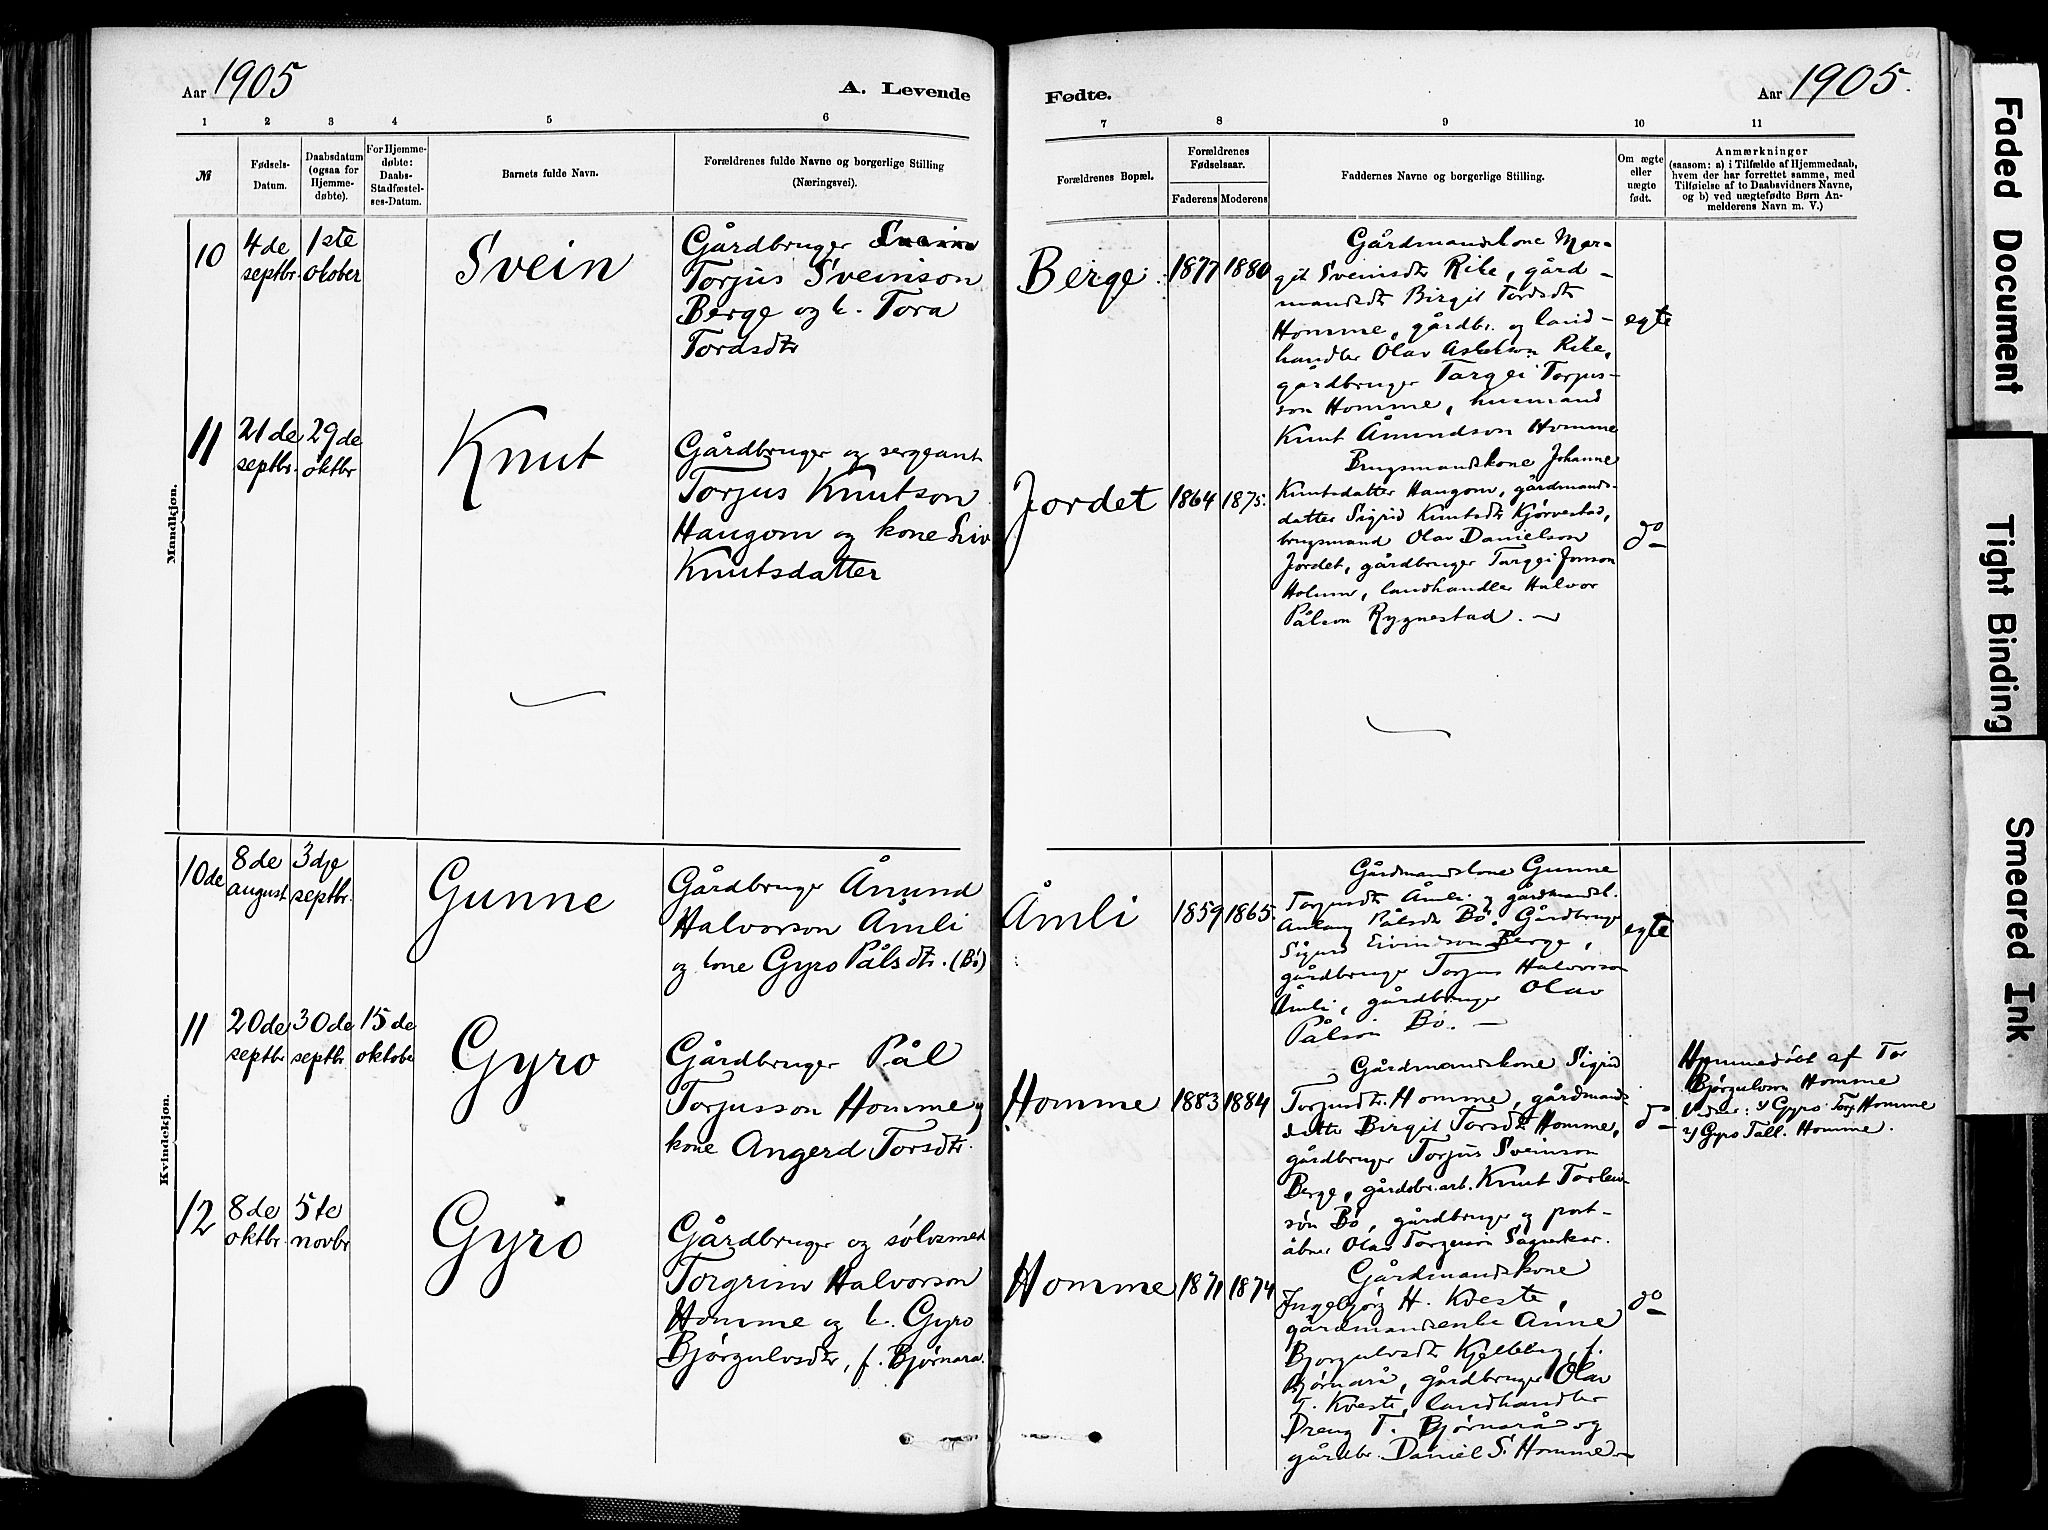 Aar 1905
A. Levende
Fødte.
Aar 1905.
1 2 3 4 5 6
7 8 9 10 11
№
Fødsels-
Datum.
Daabsdatum
(ogsaa for
Hjemme-
døbte).
For Hjemme-
døbte:
Daabs-
Stadfæstel-
ses-Datum.
Barnets fulde Navn.
Forældrenes fulde Navne og borgerlige Stilling
(Næringsvei).
Forældrenes Bopæl.
Forældrenes
Fødselsaar.
Faderens Moderens
Faddernes Navne og borgerlige Stilling.
Om ægte
eller
uægte
født.
Anmærkninger
(saasom: a) i Tilfælde af Hjemmedaab,
hvem der har forrettet samme, med
Tilføielse af to Daabsvidners Navne,
og b) ved uægtefødte Børn An-
melderens Navn m. V.)
Mandkjøn.
10
4de
septbr.
1ste
oktober
Svein
Gårdbruger
Torjus Sveinson
Berge og k. Tora
Tordsdtr
Berge
1877 1880
Gårdmandskone Mar-
git Sveinsdtr Rike, gård-
mandsdtr Birgit Tordsdtr
Homme, gårdbr. og land-
handler Olav Aslakson Rike,
gårdbruger Targei Torjus-
son Homme, husmand
Knut Åmundson Homme
egte
11
21de
septbr.
29de
oktbr
Knut
Gårdbruger og sergeant
Torjus Knutson
Haugom og kone Liv
Knutsdatter
Jordet
1864 1875.
Brugsmandskone Johanne
Knutsdatter Haugom, gårdmands-
datter Sigrid Knutsdtr Kjørvestad,
brugsmand Olav Danielson
Jordet, gårdbruger Targei Jonson
Holum, landhandler Halvor
Pålson Rygnestad. —
do
Kvindekjøn.
10de
8de
august
3dje
septbr.
Gunne
Gårdbruger Ånund
Halvorson Åmli
og kone Gyro Pålsdtr. (Bö)
Åmli
1859 1865.
Gårdmandskone Gunne
Torjusdtr Åmli og gårdmandsk.
Anlaug Pålsdtr Bö. Gårdbruger
Sigurd Eivindson Berge,
gårdbruger Torjus Halvorson
Åmli, gårdbruger Olav
Pålson Bö. —
egte
11
20de
septbr
30de
septbr
15de
oktober
Gyro
Gårdbruger Pål
Torjusson Homme og
kone Angerd Torsdtr.
Homme
1883 1884
Gårdmandskone Sigrid
Torjusdtr. Homme, gårdmands-
datter Birgit Torsdtr Homme,
gårdbruger Torjus Sveinson
Berge, gårdsbr. arb. Knut Torleiv-
són Bö, gårdbruger og post-
åbner Olav
do
Hjemmedöbt af Tor
Bjørgulvson Homme
1/ Gyro Torj. Homme
2/ Gyro Tall. Homme.
12
8de
oktbr.
5te
novbr
Gyro
Gårdbruger og sölvsmed
Torgrim Halvorson
Homme og k. Gyro
Bjørgulvsdtr, f. Bjørnara.
Homme
1871 1874
Gårdmandskone
Ingebjørg H. Kveste,
gårdmandsenke Anne
Bjørgulvsdtr f.
Bjørnarå, gårdbruger Olav
T. Kveste, landhandler
Dreng T. Bjørnarå og
gårdbr. Daniel S. Homme. —
do
Faded Document
Tight Binding
Smeared Ink